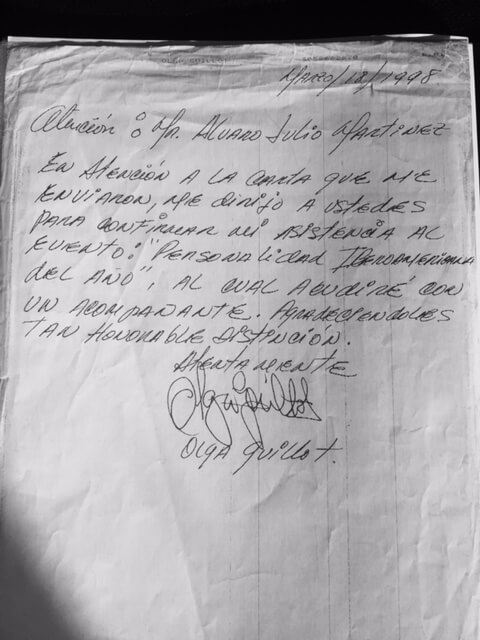 OLGA GUILLOT
Marzo/18/1998
Atención: Mr. Alvaro Julio Martinez
En Atención a la carta que me
enviaron, me dirijo a ustedes
para confirmar mi asistencia al
evento: "Personalidad Iberoamericana
del Año", al cual acudiré con
un acompañante. Agradeciendoles
tan Honorable distinción.
Atentamente
Olga Guillot
Olga Guillot.